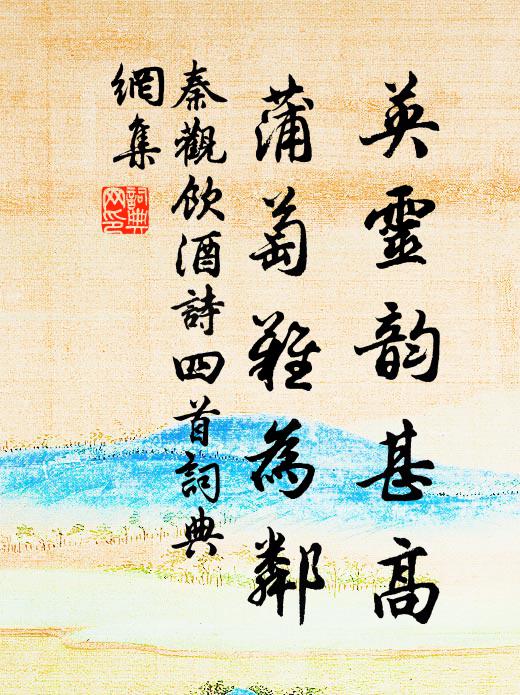 英靈韵甚高
蒲萄難為鄰
秦觀飲酒詩四首詞典
網集
詞典網印